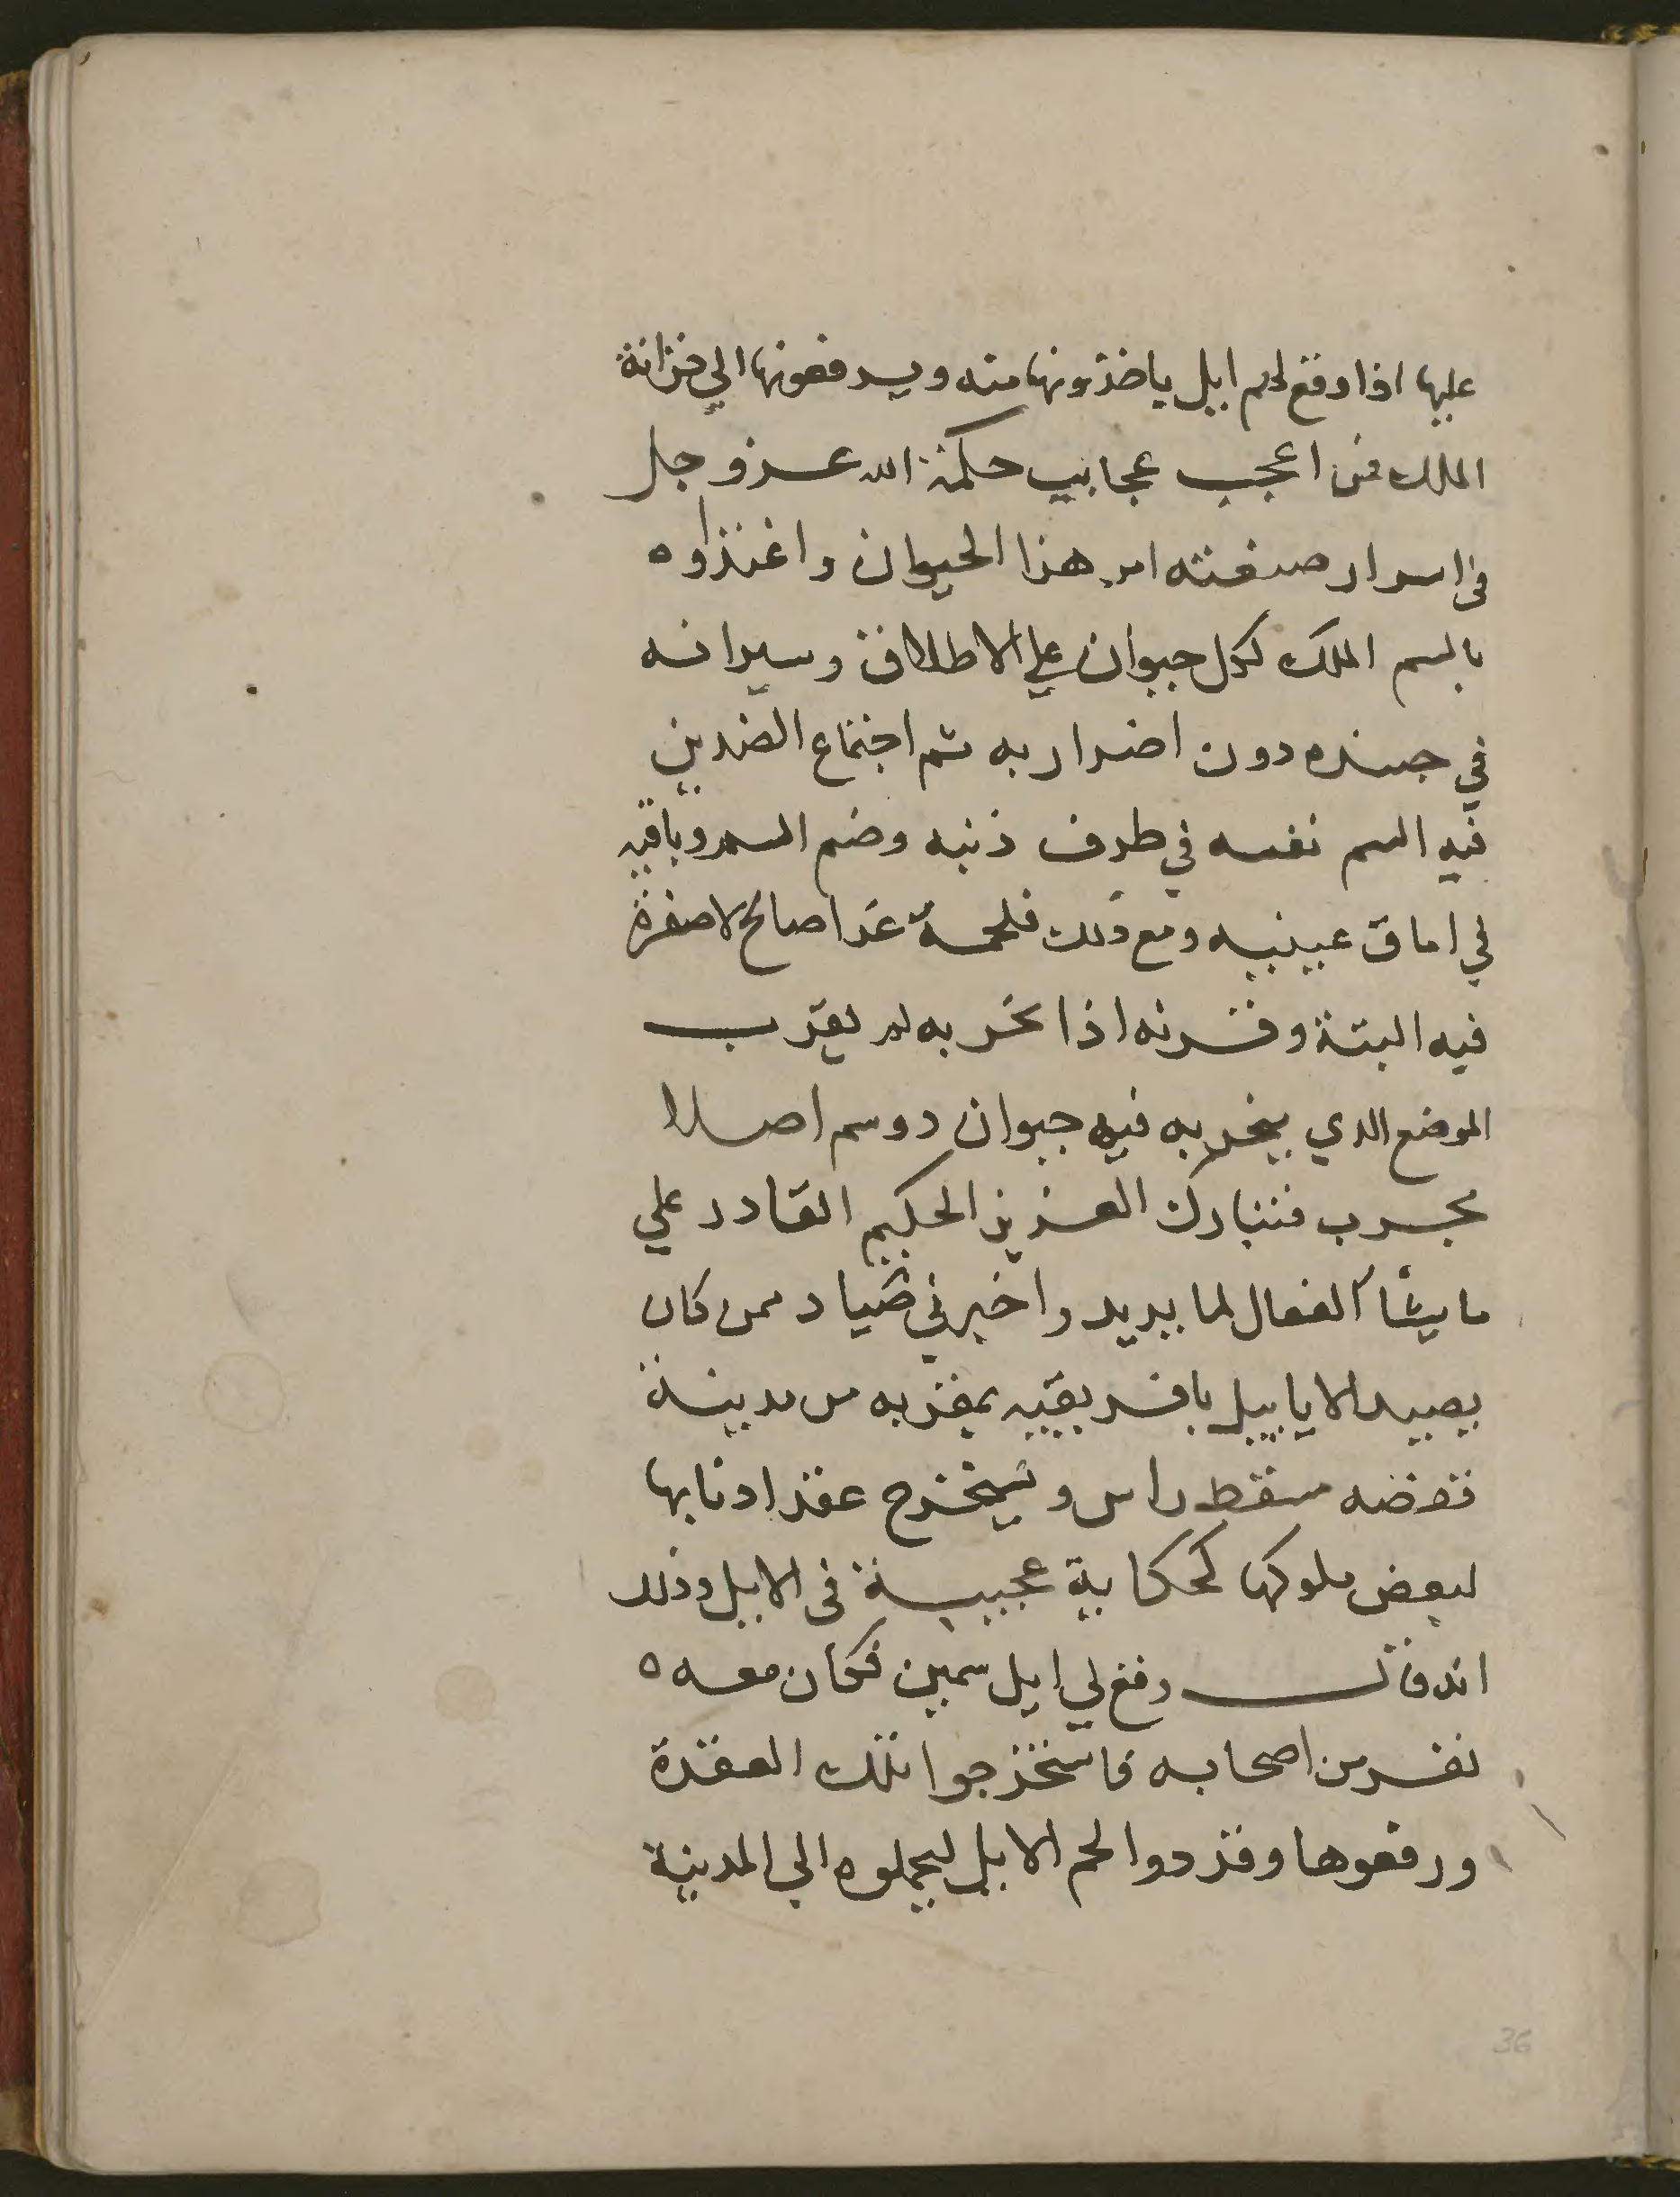 عليها اذا وقع لهم ايل ياخذونها منه ويرفعونها الي خزانة
الملك فمن اعجب عجايب حكمة الله عز وجل
في اسرار صنعته امر هذا الحيوان واغتذاوه
بالسم المهلك لكل حيوان علي الاطلاق وسريانه
في جسده دون اضرار به ثم اجتماع الضدين
فيه السم نفسه في طرف ذنبه وضم السم وباقيه
في اماق عينيه ومع ذلك فلحمه غدا صالح لا مضرة
فيه البتة وقرنه اذا بخر به لم يقرب
الموضع الذي يبخر به فيه حيوان ذو سم اصلا
مجرب فتبارك العزيز الحكيم القادر علي
ما يشأ الفعال لما يريد واخبرني صياد ممن كان
يصيد الايايل بافريقيه بمقربه من مدينة
قفصه مسقط راس ويستخرج عقد اذنابها
لبعض ملوكها كحكاية عجيبة في الايل وذلك
انه قال وقع لي ايل سمين فكان معه
نفر من اصحابه فاستخرجوا تلك العقدة
ورفعوها وقددوا لحم الايل ليحملوه الي المدينة
36